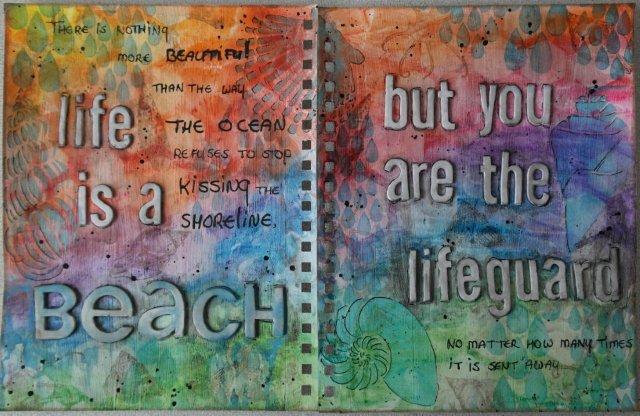 There is nothing
more beautiful
than the way
the ocean
refuses to stop
kissing the
shoreline,
life
is a
BeacH
but you
are the
lifeguard
no matter how many times
it is sent away